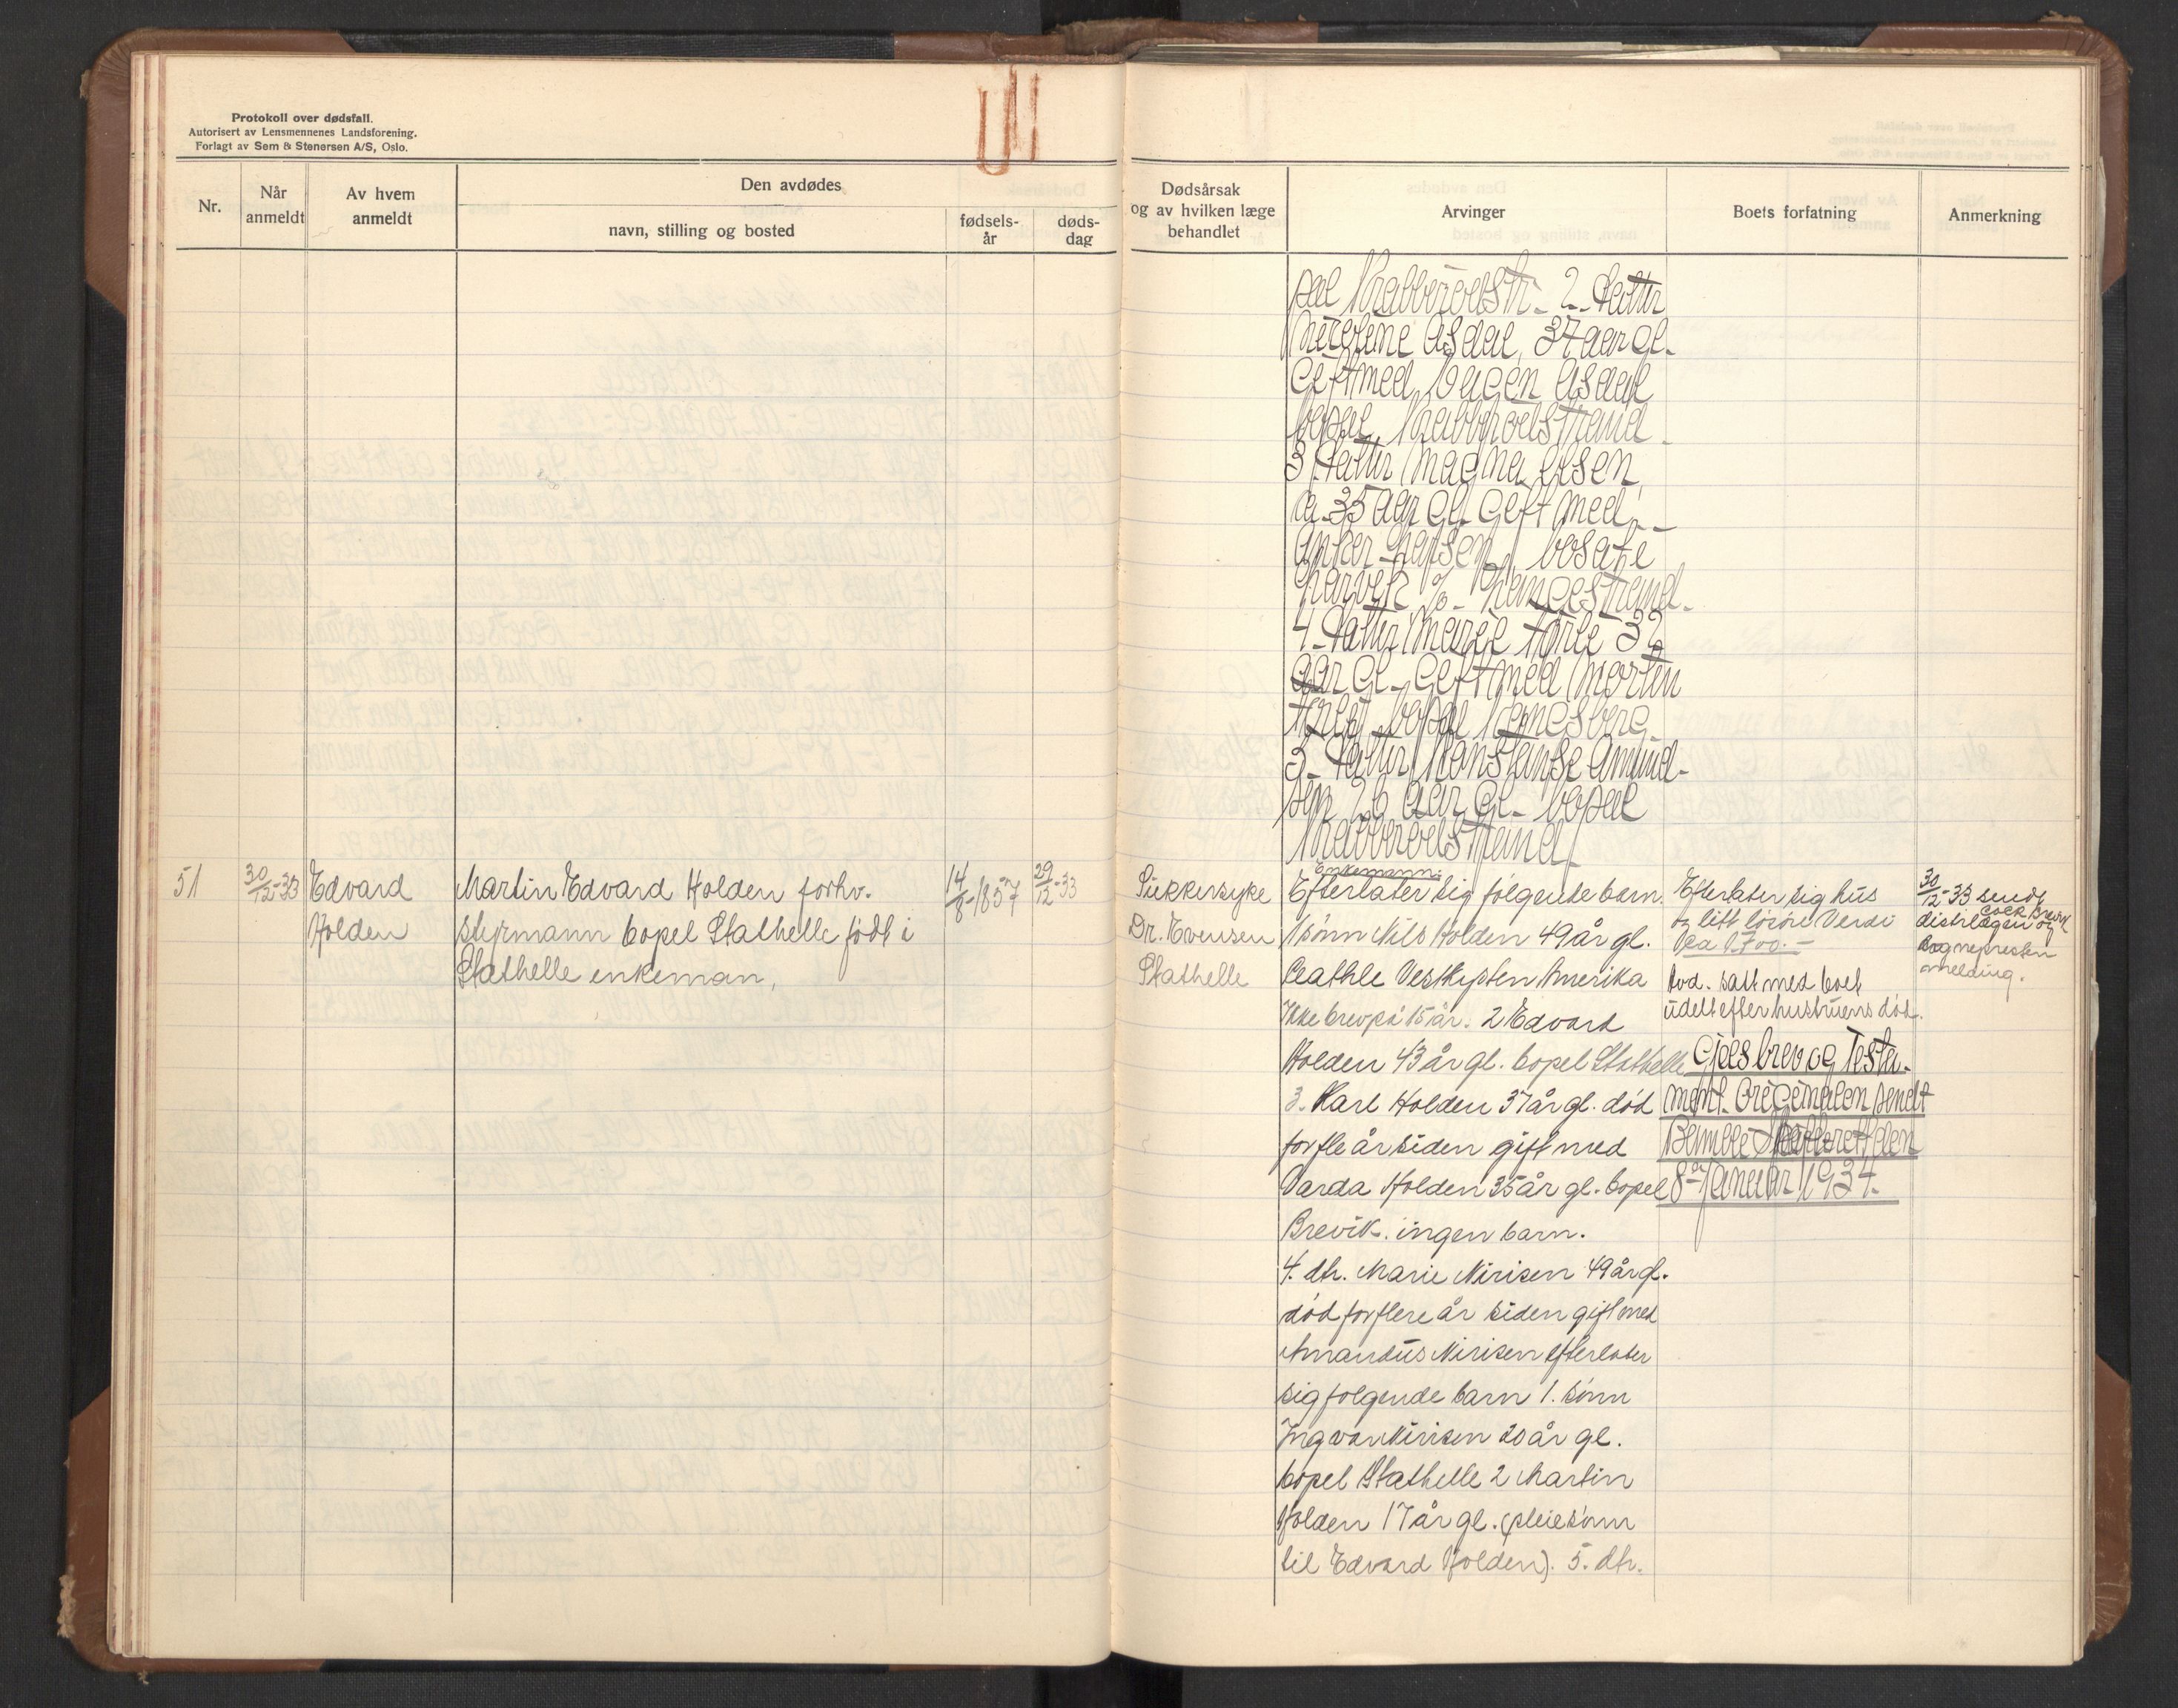 Protokoll over dødsfall.
Autorisert av Lensmennenes Landsforening.
Forlagt av Sem & Stenersen A/S, Oslo.
Nr.
Når anmeldt
Av hvem anmeldt
Den avdødes
navn, stilling og bosted
fødsels-år
døds-dag
Dødsårsak
og av hvilken læge
behandlet
Arvinger
Boets forfatning
Anmerkning
pæl Krabberødstr. 2. datter
Nicoline Asdal, 37 aar Gl.
Gift med Hagen Asdal
bopæl Krabberødstrand.
3 datter Magna Olsen
ca. 35 aar Gl. Gift med
Anker Hansen, bosatt i
Narvik
4. datter Margit Torle 32
aar Gl. Gift med Martin
bopæl Kongsberg.
5. datter Konstanse Amund-
sen 26 aar Gl. bopæl
Krabberødstrand.
51
30/12-33
Edvard
Holden
Martin Edvard Holden forhv.
styrmann bopel Stathelle født i
Stathelle enkeman,
14/8-1857
29/12-33
Sukkersyke
Dr. Evensen
Stathelle
Enkemann:
Efterlater sig følgende barn.
1 sønn Nils Holden 49 år gl.
Seathle Vestkysten Amerika
Ikke brev på 15 år. 2 Edvard
Holden 43 år gl. bopel Stathelle
3. Karl Holden 37 år gl. død
for fle år siden gift med
Varda Holden 35 år gl. bopel
Brevik. ingen barn.
4. dtr. Marie Nirisen 49 år gl.
død for flere år siden gift med
Amandus Nirisen efterlater
sig følgende barn 1. sønn
Ingvar Nirisen 20 år gl.
bopel Stathelle 2 Martin
Holden 17 år gl. (pleiesønn
til Edvard Holden). 5. dtr.
Efterlater sig hus
og litt løsøre Verdi
ca 1700.-
Avd. satt med boet
udelt efter hustruens død.
Gjensbrev og Testa-
ment. Originalen sendt
Bamble Skifteret den
8de Januar 1934.
30/12-33 sendt
distrlægen og
Cock Brevik
sognepresten
melding.